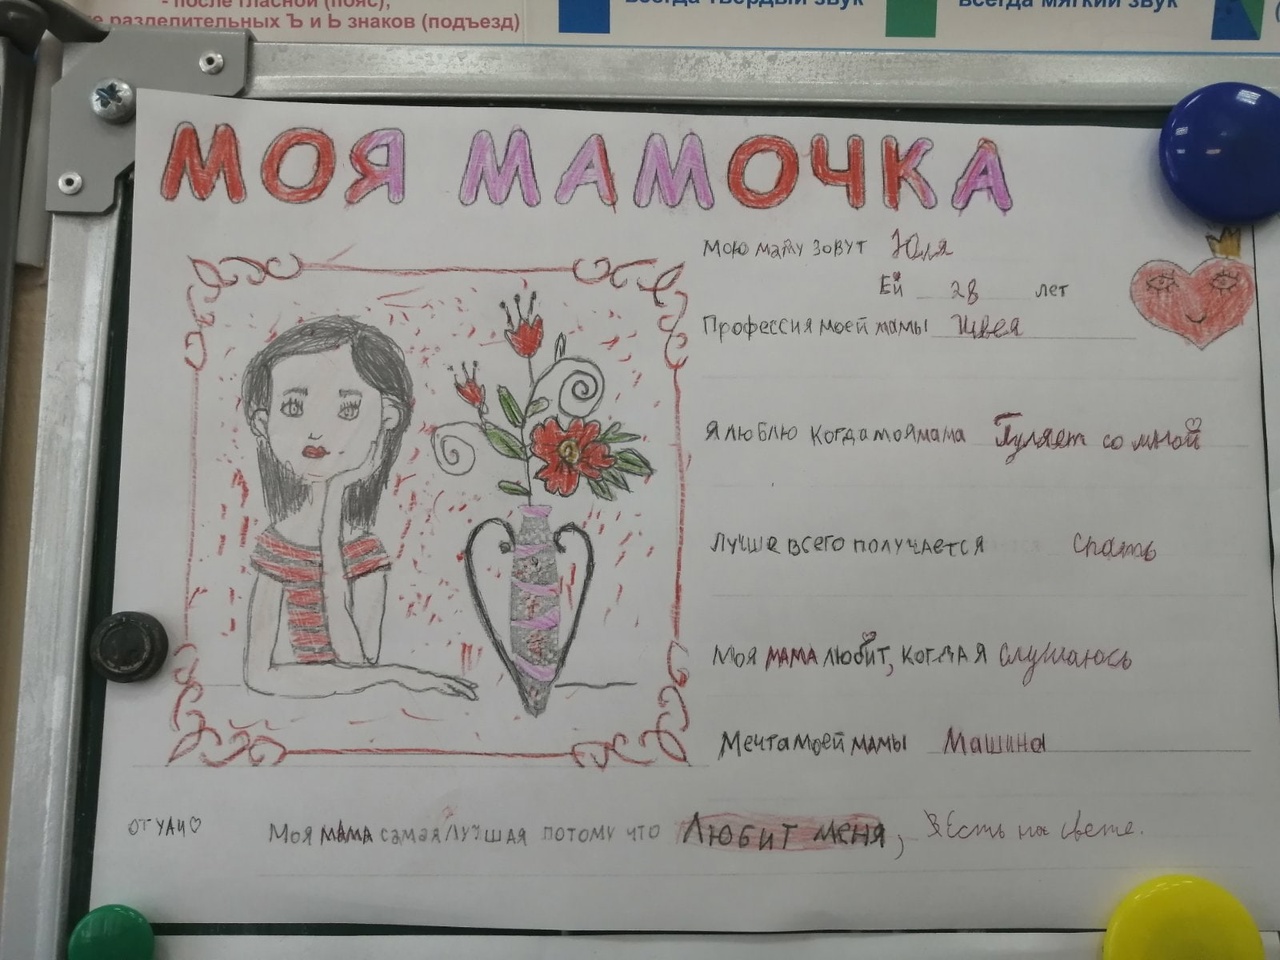 - после гласной (пояс),
е разделительных Ъ и Ь знаков (подъезд)
всегда твердый звук
всегда мягкий звук
МОЯ МАМОЧКА
Мою маму зовут Юля
Ей 28 лет
Профессия моей мамы Швея
Я люблю когда моя мама Гуляет со мной
Лучше всего получается спать
Моя мама любит, когда я слушаюсь
Мечта моей мамы Машина
от Ули
Моя мама самая лучшая потому что Любит меня, Есть на свете.